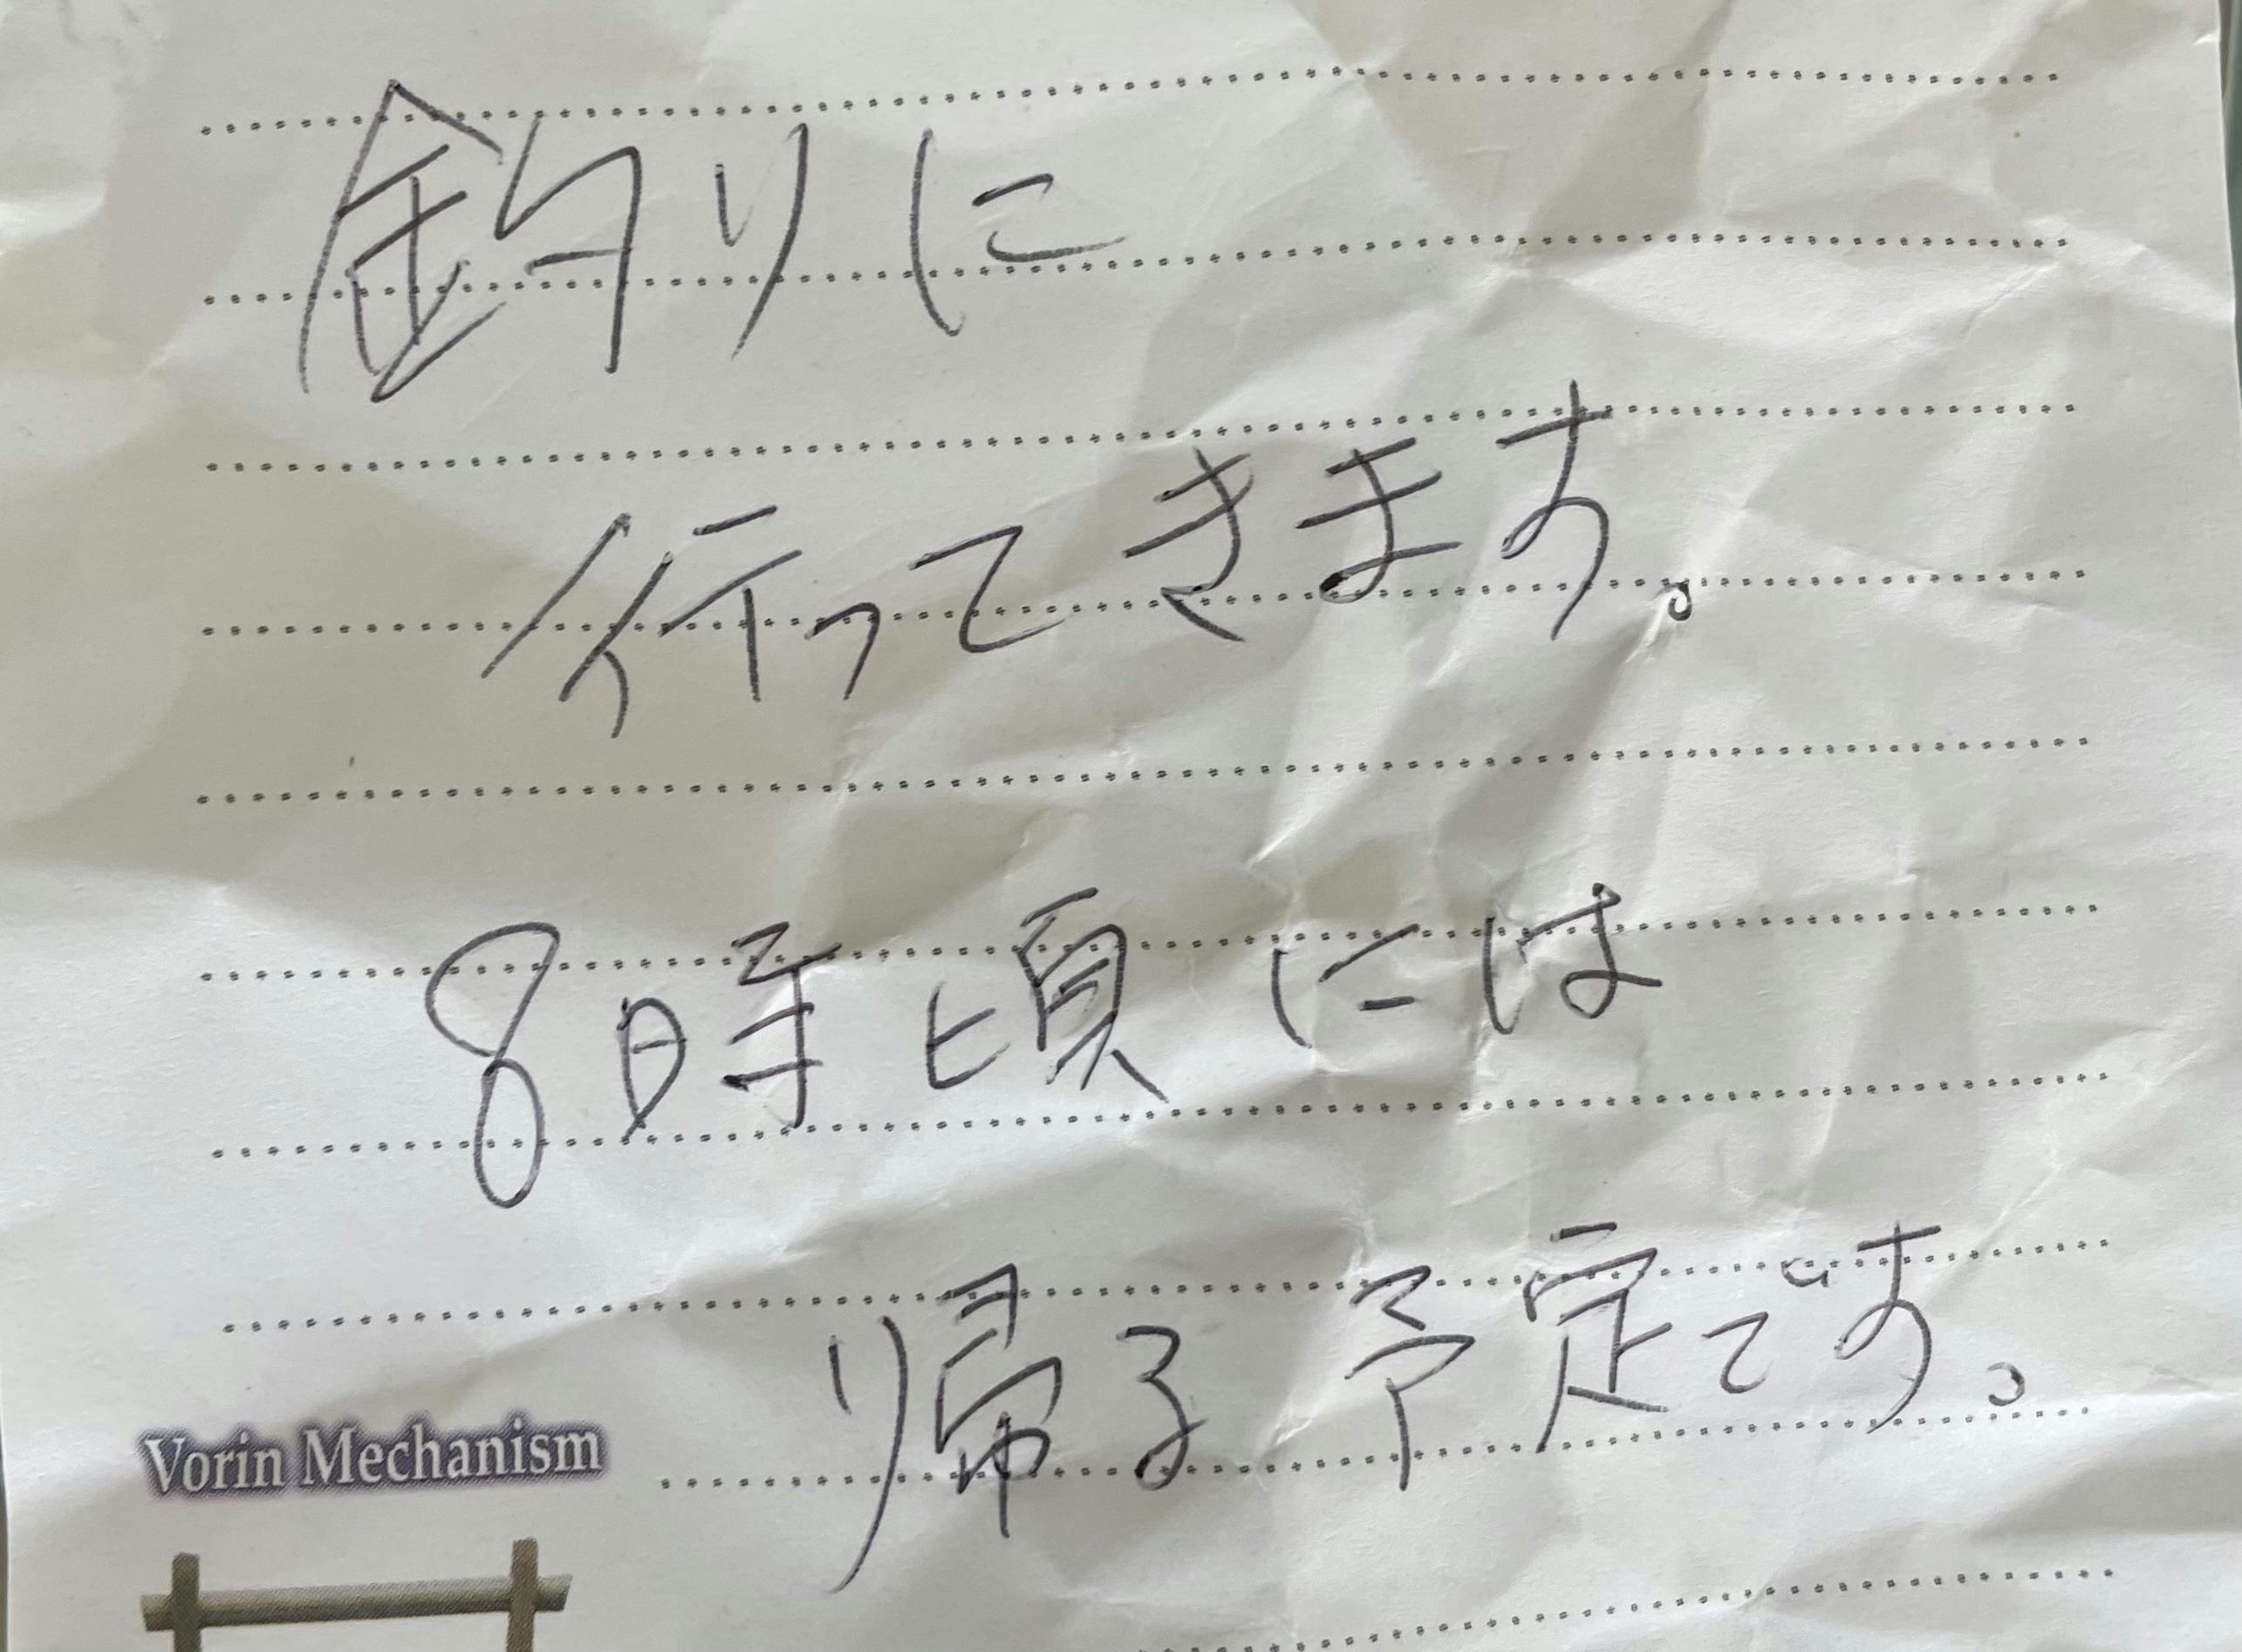 釣りに
行ってきます。
8時頃には
帰る予定です。
Vorin Mechanism